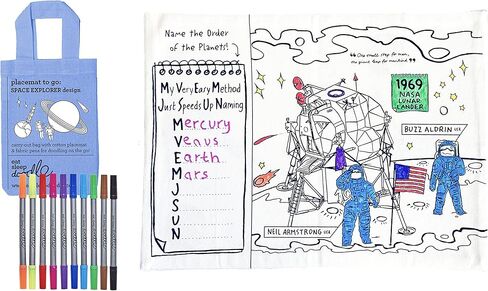 placemat to go:
SPACE EXPLORER design
carry-out bag with cotton placemat
& fabric pens for doodling on the go!
eat
sleep
doodle
Name the Order
of the Planets!
My Very Easy Method
Just Speeds Up Naming
Mercury
Venus
Earth
Mars
J
S
U
N
"One small step for man,
one giant leap for mankind."
1969
NASA
LUNAR
LANDER
BUZZ ALDRIN USA
NEIL ARMSTRONG USA